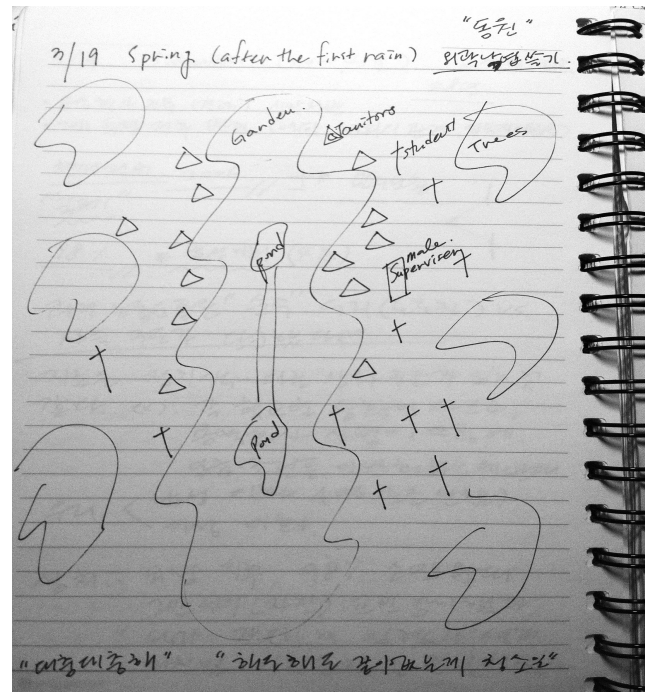 "동원"
3/19 Spring (after the first rain) 외곽낙엽쓸기.
Garden.
Janitors
student
Trees
pond
male.
Superviser
pond
"대충대충해" "해도해도 끝이없는게 청소일"